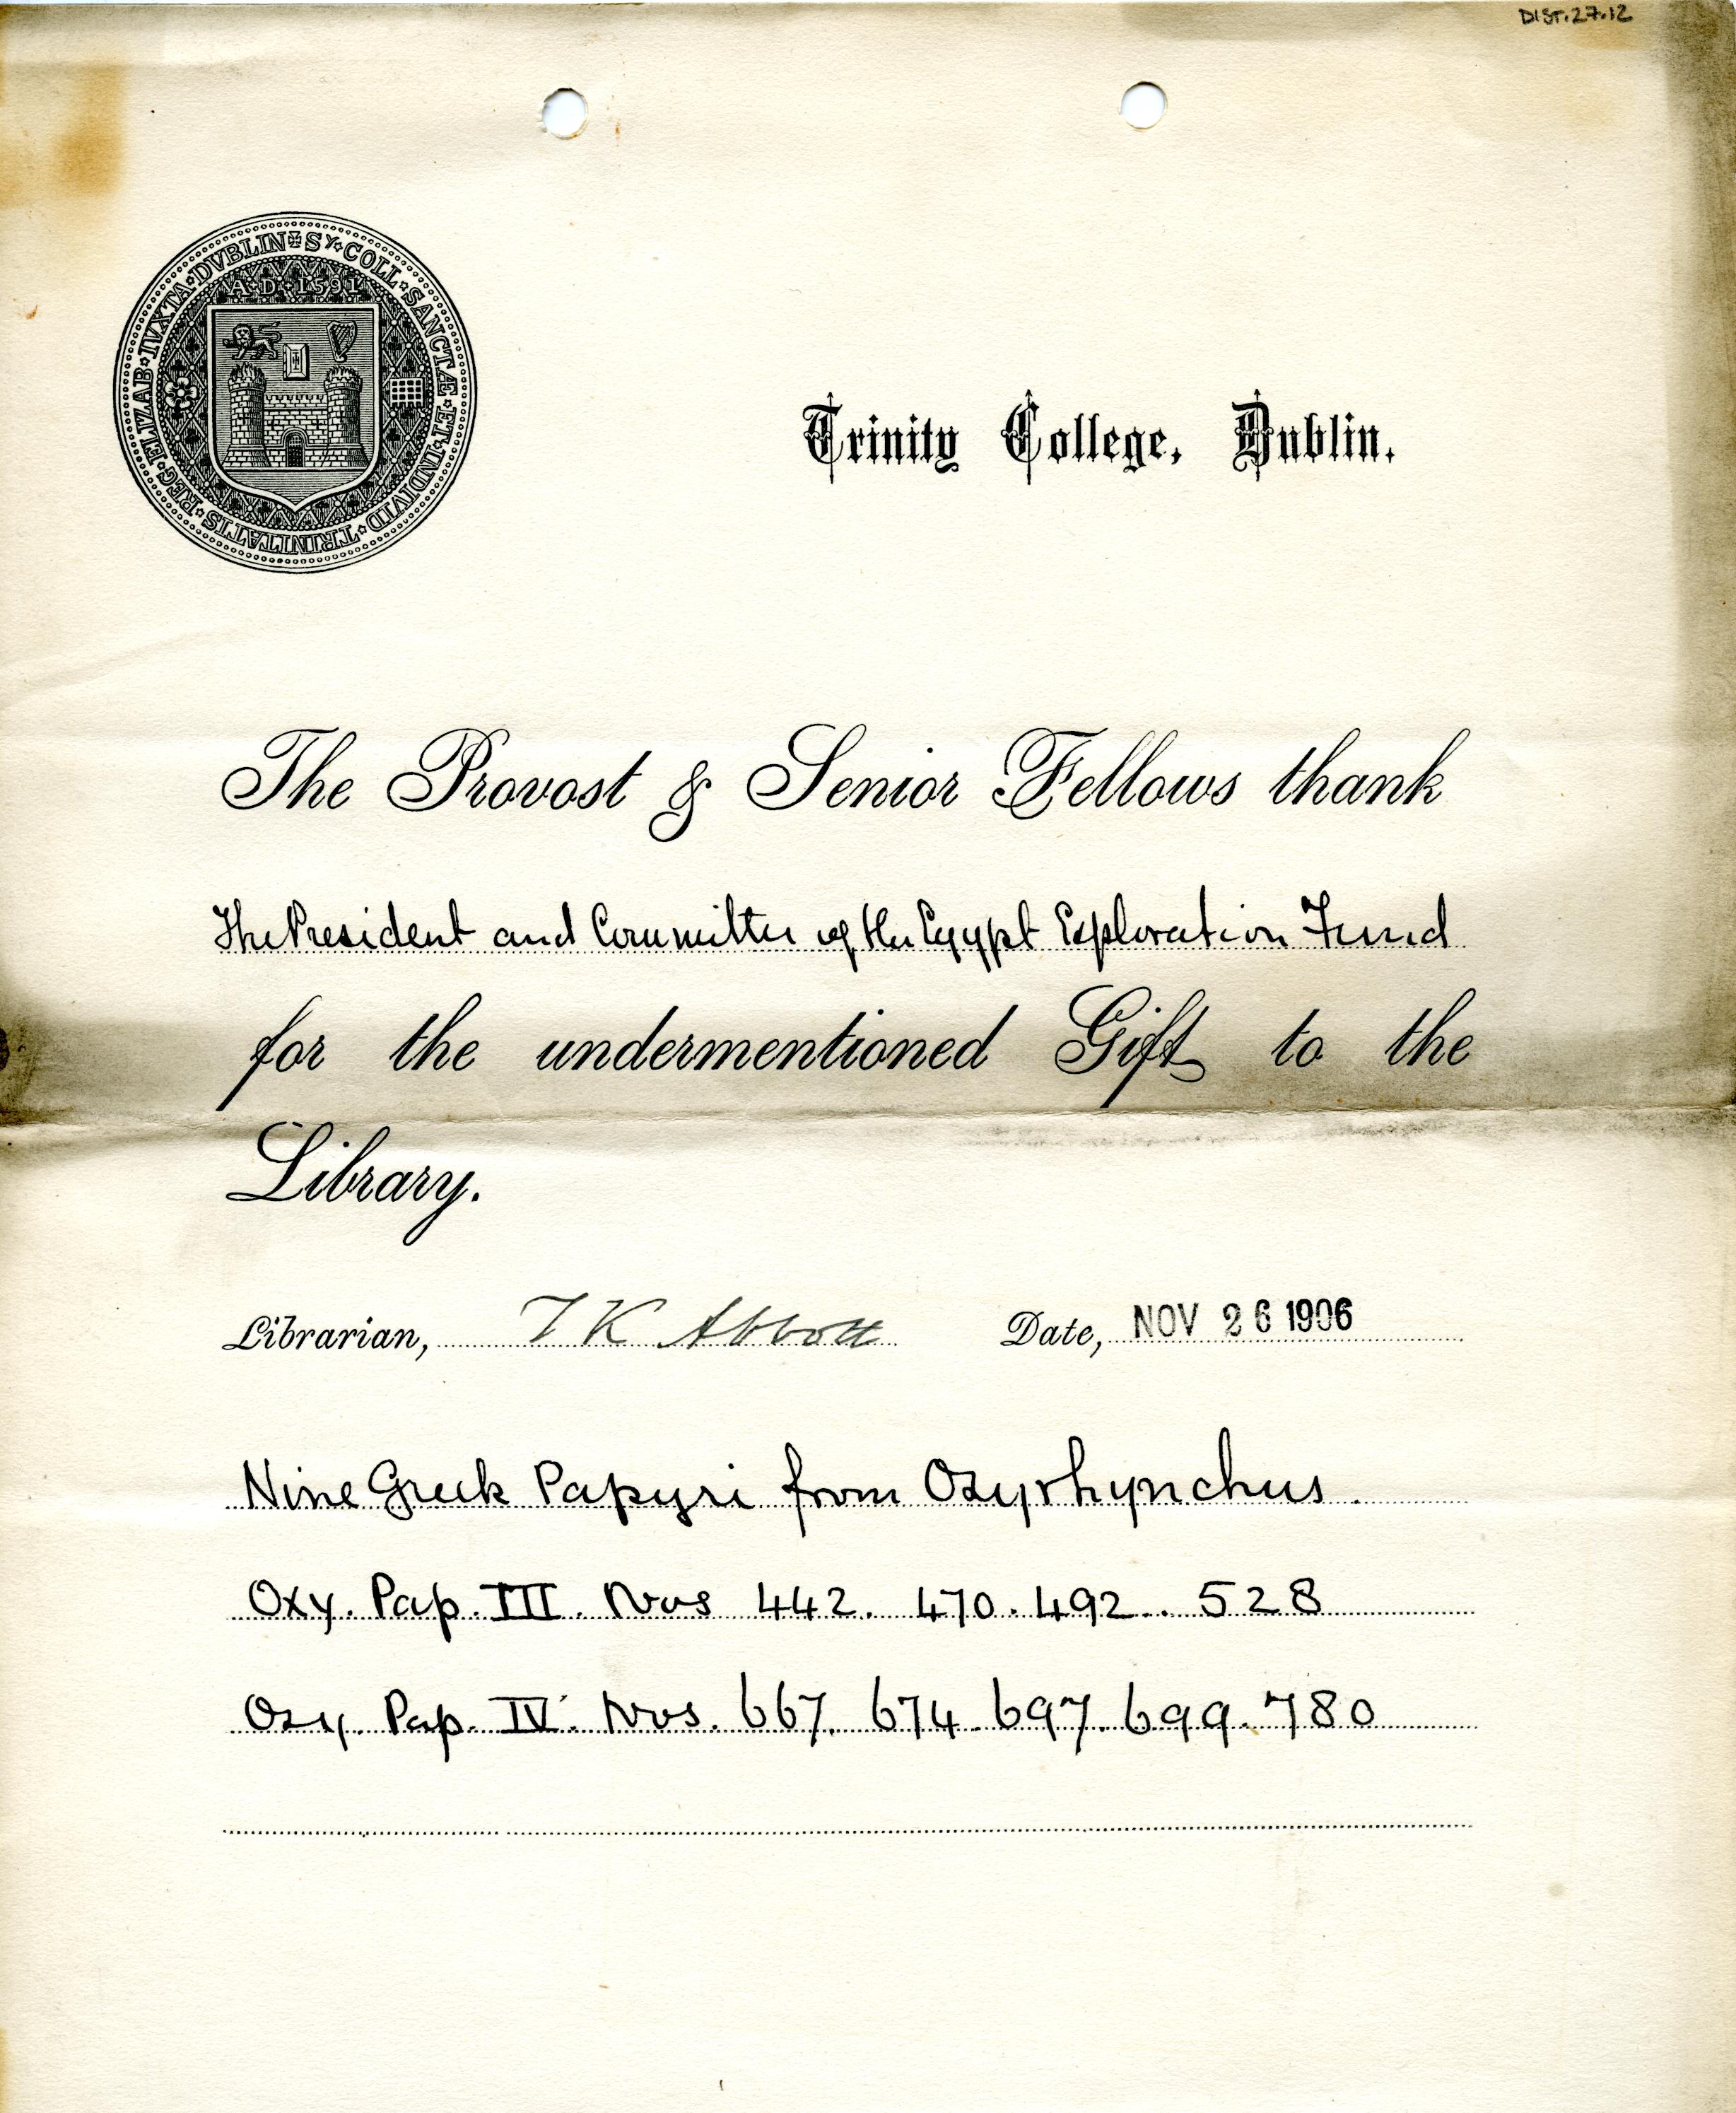 DIST.27.12
SY COLL SANCTÆ ET INDIVID TRINITATIS REG ELIZAB IVXTA DVBLIN
A D 1591
Trinity College, Dublin.
The Provost & Senior Fellows thank
The President and Committee of the Egypt Exploration Fund
for the undermentioned Gift to the
Library.
Librarian, T K Abbott Date, NOV 26 1906
Nine Greek Papyri from Oxyrhynchus.
Oxy. Pap. III. Nos 442. 470. 492. 528
Oxy. Pap. IV. Nos. 667. 674. 697. 699. 780